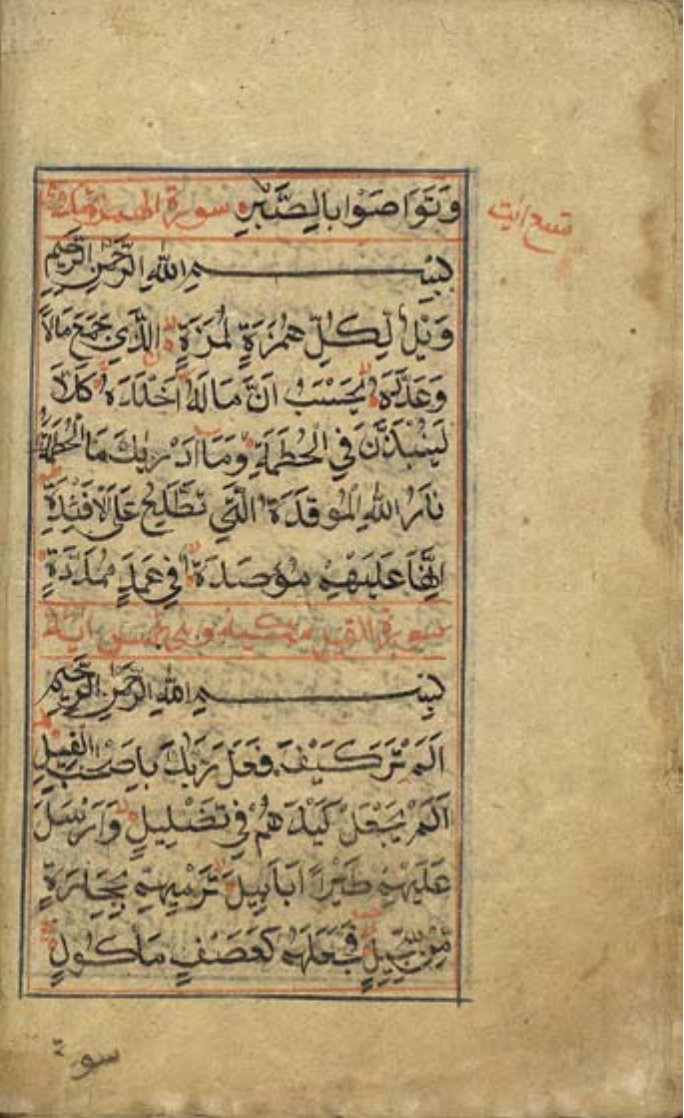 وَتَوَاصَوْا بِالصَّبْرِ سورة الهمزة مكية
تسع ايات
بِسْمِ اللهِ الرَّحْمٰنِ الرَّحِيْمِ
وَيْلٌ لِكُلِّ هُمَزَةٍ لُمَزَةٍ الَّذِي جَمَعَ مَالًا
وَعَدَّدَهُ يَحْسَبُ اَنَّ مَالَهُ اَخْلَدَهُ كَلَّا
لَيُنْبَذَنَّ فِي الْحُطَمَةِ وَمَا اَدْرٰىكَ مَا الْحُطَمَةُ
نَارُ اللهِ الْمُوقَدَةُ الَّتِي تَطَّلِعُ عَلَى الْاَفْئِدَةِ
اِنَّهَا عَلَيْهِمْ مُؤْصَدَةٌ فِي عَمَدٍ مُمَدَّدَةٍ
سورة الفيل مكية وهي خمس اية
بِسْمِ اللهِ الرَّحْمٰنِ الرَّحِيْمِ
اَلَمْ تَرَ كَيْفَ فَعَلَ رَبُّكَ بِاَصْحٰبِ الْفِيْلِ
اَلَمْ يَجْعَلْ كَيْدَهُمْ فِي تَضْلِيْلٍ وَاَرْسَلَ
عَلَيْهِمْ طَيْرًا اَبَابِيْلَ تَرْمِيْهِمْ بِحِجَارَةٍ
مِنْ سِجِّيْلٍ فَجَعَلَهُمْ كَعَصْفٍ مَأْكُوْلٍ
سورة